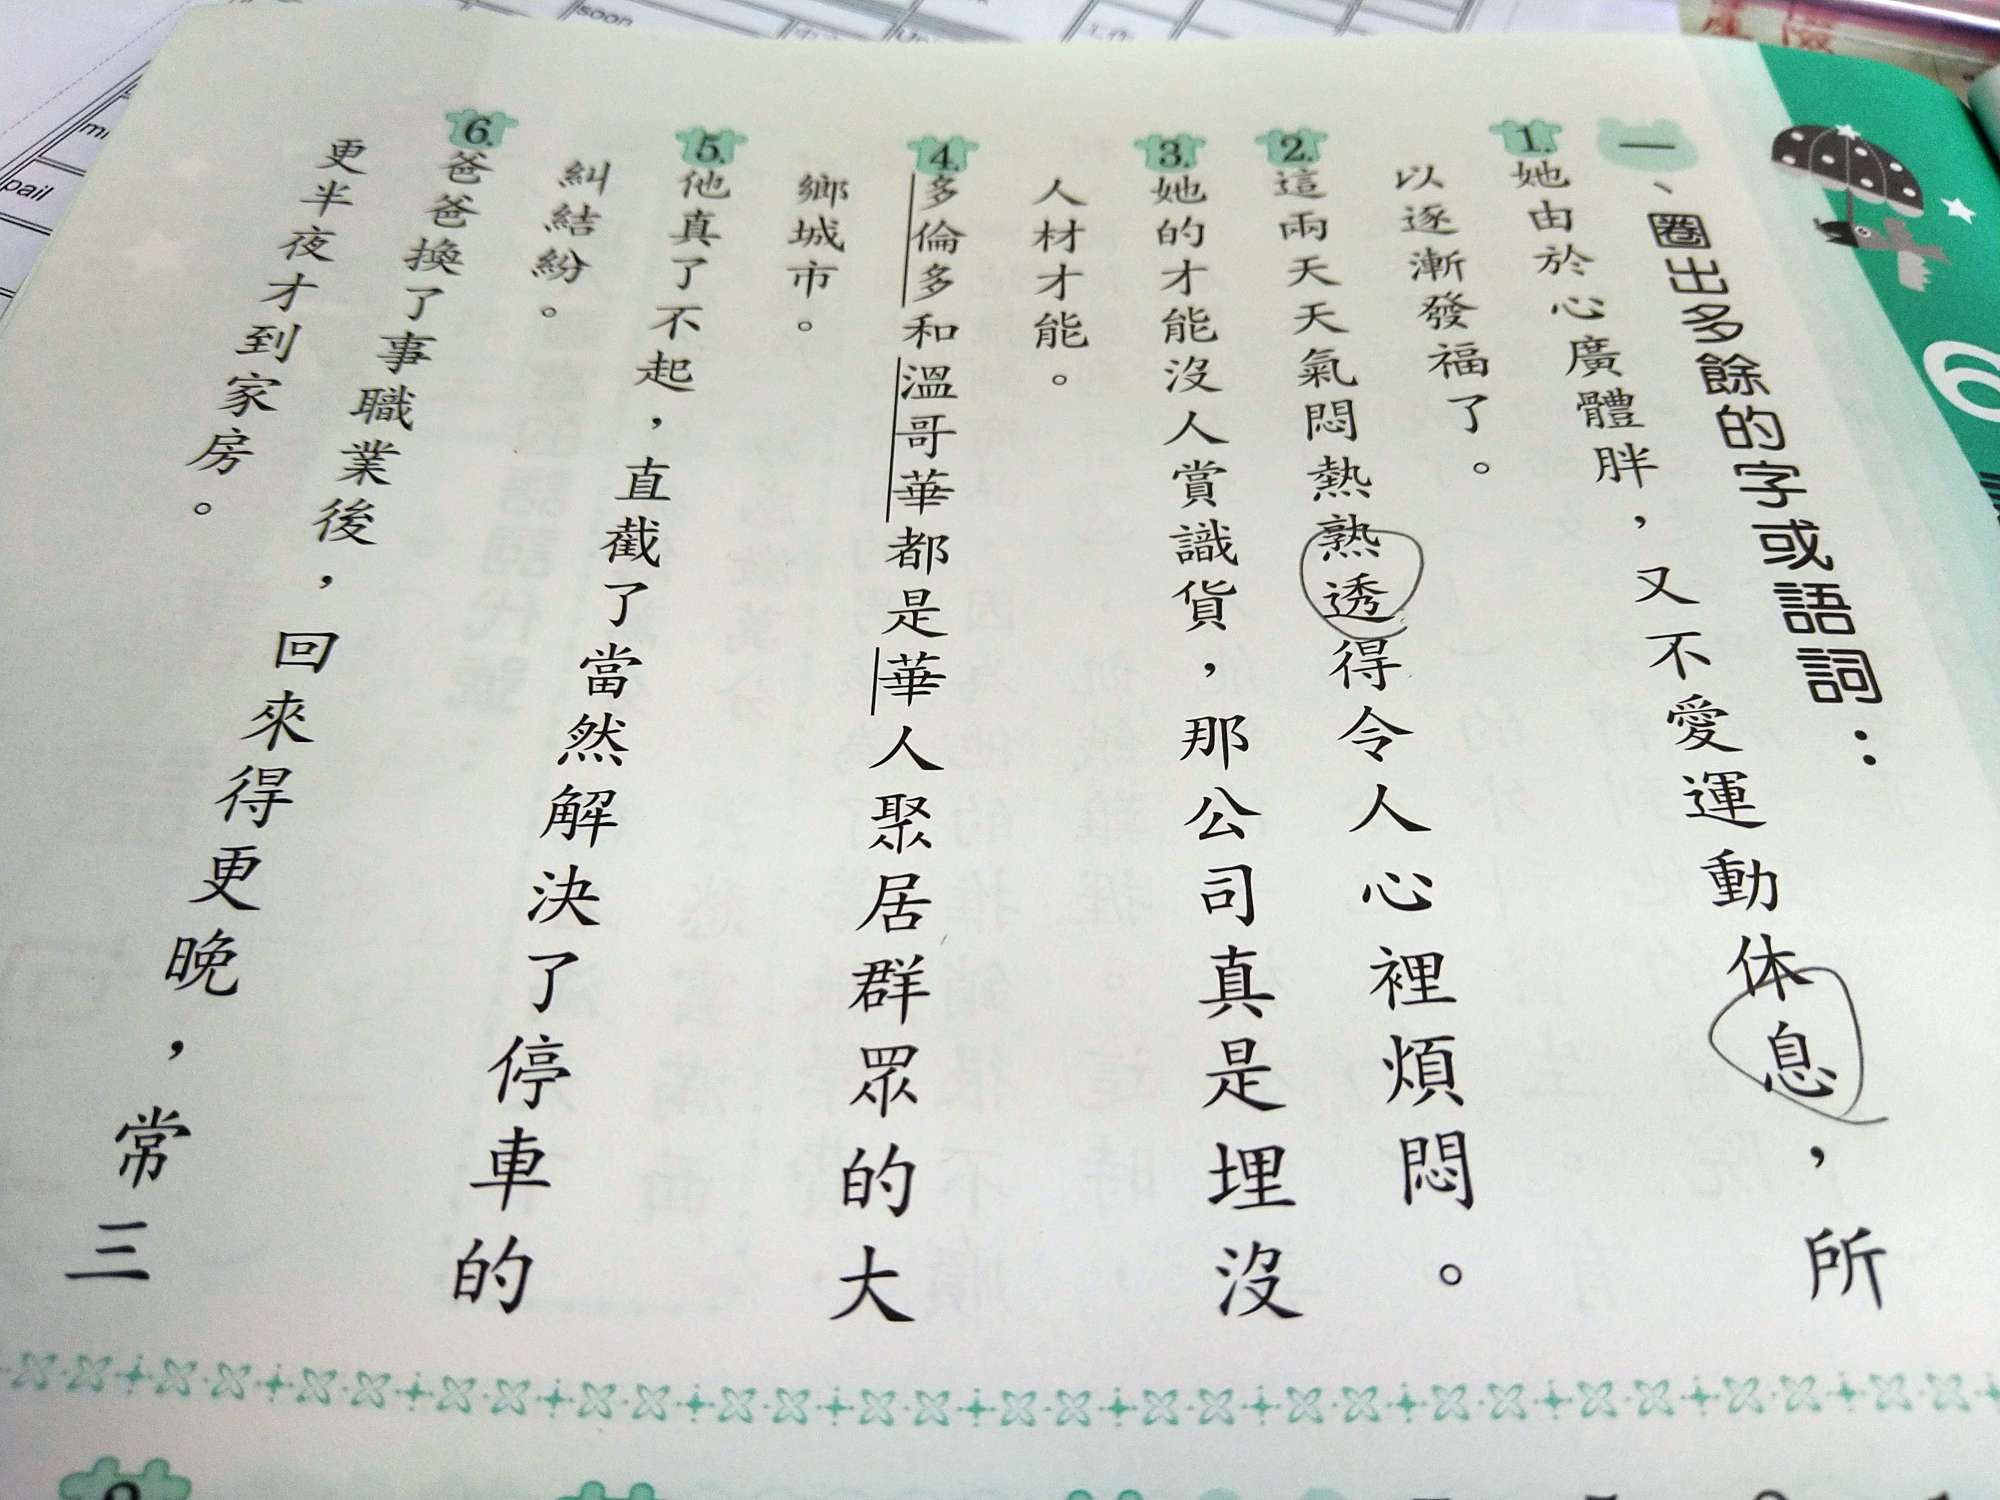 一、圈出多餘的字或語詞：
1.她由於心廣體胖，又不愛運動休息，所
以逐漸發福了。
2.這兩天天氣悶熱熟透得令人心裡煩悶。
3.她的才能沒人賞識貨，那公司真是埋沒
人材才能。
4.多倫多和溫哥華都是華人聚居群眾的大
鄉城市。
5.他真了不起，直截了當然解決了停車的
糾結紛。
6.爸爸換了事職業後，回來得更晚，常三
更半夜才到家房。
6
soon
pail